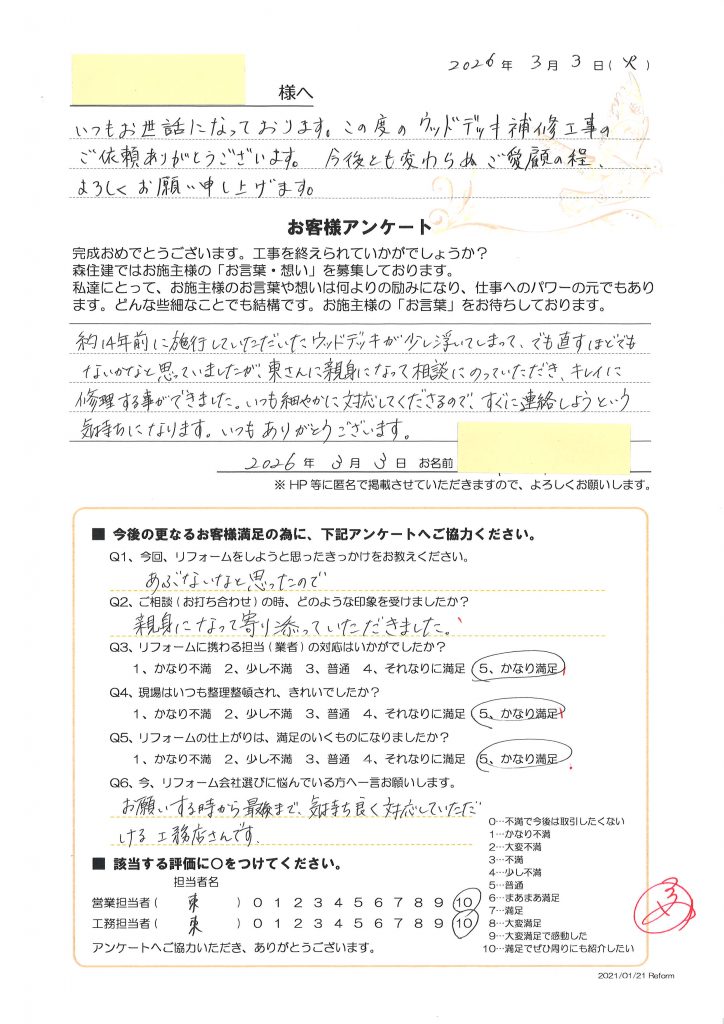 2026年 3月 3日(火)
様へ
いつもお世話になっております。この度のウッドデッキ補修工事の
ご依頼ありがとうございます。 今後とも変わらぬご愛顧の程、
よろしくお願い申し上げます。
お客様アンケート
完成おめでとうございます。工事を終えられていかがでしょうか？
森住建ではお施主様の「お言葉・想い」を募集しております。
私達にとって、お施主様のお言葉や想いは何よりの励みになり、仕事へのパワーの元でもあり
ます。どんな些細なことでも結構です。お施主様の「お言葉」をお待ちしております。
約14年前に施行していただいたウッドデッキが少し浮いてしまって、でも直すほどでも
ないかなと思っていましたが、東さんに親身になって相談にのっていただき、キレイに
修理する事ができました。いつも細やかに対応してくださるので、すぐに連絡しようという
気持ちになります。いつもありがとうございます。
2026年 3月 3日 お名前
※HP等に匿名で掲載させていただきますので、よろしくお願いします。
■ 今後の更なるお客様満足の為に、下記アンケートへご協力ください。
Q1、今回、リフォームをしようと思ったきっかけをお教えください。
あぶないなと思ったので
Q2、ご相談(お打ち合わせ)の時、どのような印象を受けましたか？
親身になって寄り添っていただきました。
Q3、リフォームに携わる担当(業者)の対応はいかがでしたか？
1、かなり不満 2、少し不満 3、普通 4、それなりに満足 5、かなり満足
Q4、現場はいつも整理整頓され、きれいでしたか？
1、かなり不満 2、少し不満 3、普通 4、それなりに満足 5、かなり満足
Q5、リフォームの仕上がりは、満足のいくものになりましたか？
1、かなり不満 2、少し不満 3、普通 4、それなりに満足 5、かなり満足
Q6、今、リフォーム会社選びに悩んでいる方へ一言お願いします。
お願いする時から最後まで、気持ち良く対応していただ
ける工務店さんです。
■ 該当する評価に〇をつけてください。
担当者名
営業担当者( 東 ) 0 1 2 3 4 5 6 7 8 9 10
工務担当者( 東 ) 0 1 2 3 4 5 6 7 8 9 10
アンケートへご協力いただき、ありがとうございます。
0…不満で今後は取引したくない
1…かなり不満
2…大変不満
3…不満
4…少し不満
5…普通
6…まあまあ満足
7…満足
8…大変満足
9…大変満足で感動した
10…満足でぜひ周りにも紹介したい
2021/01/21 Reform